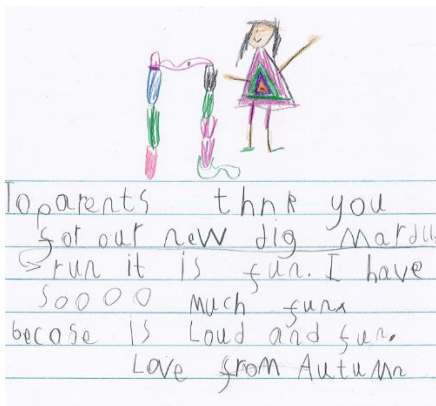 To parents thnk you
for our new dig mardu
run it is fun. I have
soooo much fun.
becose is Loud and fun.
Love from Autumn